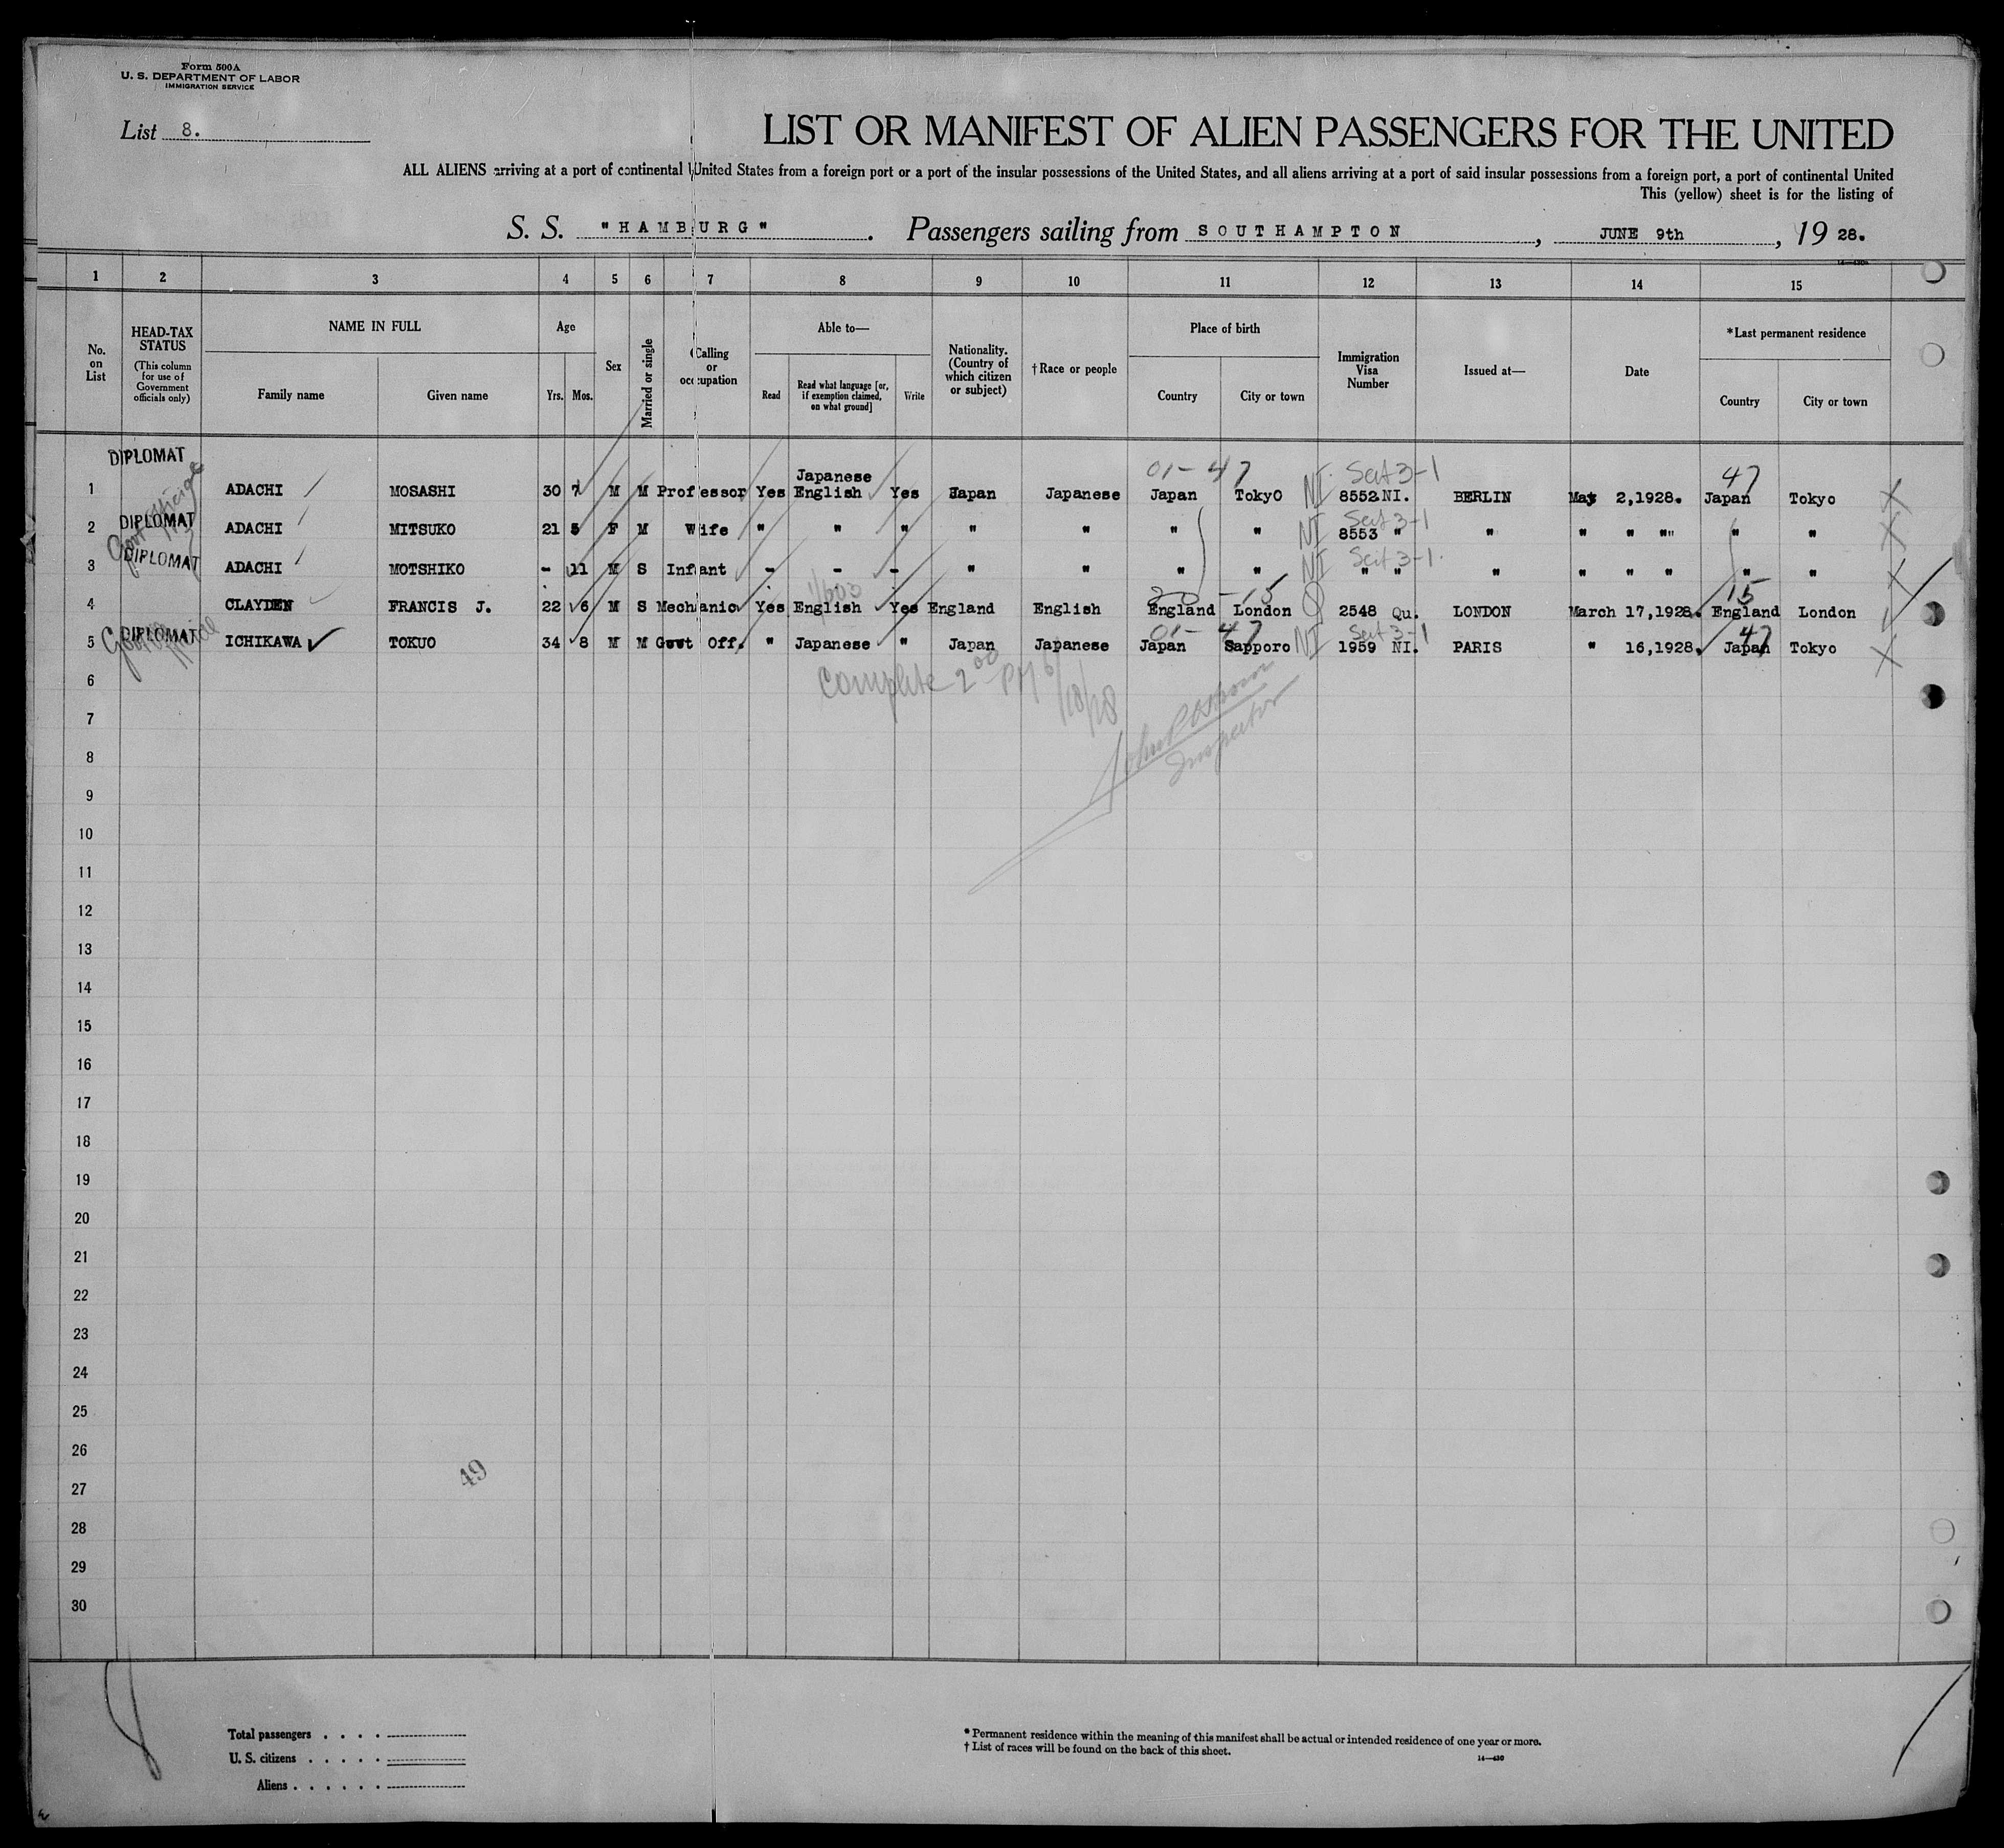 Form 500A
U. S. DEPARTMENT OF LABOR
IMMIGRATION SERVICE
List 8.
LIST OR MANIFEST OF ALIEN PASSENGERS FOR THE UNITED
ALL ALIENS arriving at a port of continental United States from a foreign port or a port of the insular possessions of the United States, and all aliens arriving at a port of said insular possessions from a foreign port, a port of continental United
This (yellow) sheet is for the listing of
S. S. "HAMBURG". Passengers sailing from SOUTHAMPTON, JUNE 9th, 19 28.
1 2 3 4 5 6 7 8 9 10 11 12 13 14 15
No. on List
HEAD-TAX STATUS (This column for use of Government officials only)
NAME IN FULL
Family name
Given name
Age
Yrs. Mos.
Sex
Married or single
Calling or occupation
Able to—
Read
Read what language [or, if exemption claimed, on what ground]
Write
Nationality. (Country of which citizen or subject)
†Race or people
Place of birth
Country
City or town
Immigration Visa Number
Issued at—
Date
*Last permanent residence
Country
City or town
DIPLOMAT
01-47 Sect 3-1 47
1 ADACHI MOSASHI 30 7 M M Professor Yes Japanese English Yes Japan Japanese Japan TokyO NI 8552 NI. BERLIN May 2,1928. Japan Tokyo
DIPLOMAT
Sect 3-1
2 ADACHI MITSUKO 21 5 F M Wife " " " " " " " NI 8553 " " " " " " "
DIPLOMAT
Sect 3-1
3 ADACHI MOTSHIKO - 11 M S Infant - - - " " " " NI " " " " " " " "
20-15 15
4 CLAYDEN FRANCIS J. 22 6 M S Mechanic Yes English Yes England English England London Q 2548 Qu. LONDON March 17,1928. England London
DIPLOMAT
01-47 Sect 3-1 47
5 ICHIKAWA TOKUO 34 8 M M Govt Off. " Japanese " Japan Japanese Japan Sapporo NI 1959 NI. PARIS " 16,1928. Japan Tokyo
Complete 2 00 PM 6/18/28
Inspector
6
7
8
9
10
11
12
13
14
15
16
17
18
19
20
21
22
23
24
25
26
49
27
28
29
30
Total passengers
U. S. citizens
Aliens
* Permanent residence within the meaning of this manifest shall be actual or intended residence of one year or more.
† List of races will be found on the back of this sheet.
14—430